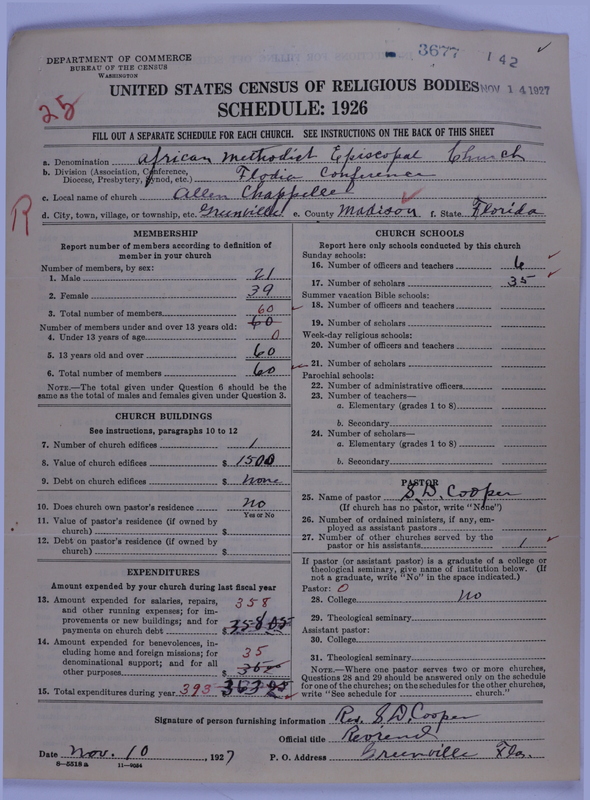 3677 142
DEPARTMENT OF COMMERCE
BUREAU OF THE CENSUS
WASHINGTON
UNITED STATES CENSUS OF RELIGIOUS BODIES
NOV 14 1927
25
SCHEDULE: 1926
FILL OUT A SEPARATE SCHEDULE FOR EACH CHURCH. SEE INSTRUCTIONS ON THE BACK OF THIS SHEET
a. Denomination African Methodist Episcopal Church
b. Division (Association, Conference,
Diocese, Presbytery, Synod, etc.) Flodia Conference
c. Local name of church Allen Chappelle
R
d. City, town, village, or township, etc. Greenville e. County Madison f. State Florida
MEMBERSHIP
Report number of members according to definition of
member in your church
Number of members, by sex:
1. Male 21
2. Female 39
3. Total number of members 60
Number of members under and over 13 years old: 60
4. Under 13 years of age 0
5. 13 years old and over 60
6. Total number of members 60
NOTE.—The total given under Question 6 should be
same as the total of males and females given under Question 3.
CHURCH BUILDINGS
See instructions, paragraphs 10 to 12
7. Number of church edifices 1
8. Value of church edifices $ 1500
9. Debt on church edifices $ none
10. Does church own pastor's residence no
Yes or No
11. Value of pastor's residence (if owned by
church) $
12. Debt on pastor's residence (if owned by
church) $
EXPENDITURES
Amount expended by your church during last fiscal year
13. Amount expended for salaries, repairs,
and other running expenses; for im-
provements or new buildings; and for
payments on church debt $ 358
14. Amount expended for benevolences, in-
cluding home and foreign missions; for
denominational support; and for all
other purposes $ 35
15. Total expenditures during year 393
CHURCH SCHOOLS
Report here only schools conducted by this church
Sunday schools:
16. Number of officers and teachers 6
17. Number of scholars 35
Summer vacation Bible schools:
18. Number of officers and teachers
19. Number of scholars
Week-day religious schools:
20. Number of officers and teachers
21. Number of scholars
Parochial schools:
22. Number of administrative officers
23. Number of teachers—
a. Elementary (grades 1 to 8)
b. Secondary
24. Number of scholars—
a. Elementary (grades 1 to 8)
b. Secondary
PASTOR
25. Name of pastor S. D. Cooper
(If church has no pastor, write "None")
26. Number of ordained ministers, if any, em-
ployed as assistant pastors
27. Number of other churches served by the
pastor or his assistants 1
If pastor (or assistant pastor) is a graduate of a college or
theological seminary, give name of institution below. (If
not a graduate, write "No" in the space indicated.)
Pastor: 0
28. College no
29. Theological seminary
Assistant pastor:
30. College
31. Theological seminary
NOTE.—Where one pastor serves two or more churches,
Questions 28 and 29 should be answered only on the schedule
for one of the churches; on the schedules for the other churches,
write "See schedule for church."
Signature of person furnishing information Rev. S. D. Cooper
Official title Reverend
Date Nov. 10, 1927 P. O. Address Greenville Fla.
8—5518a 11—9034